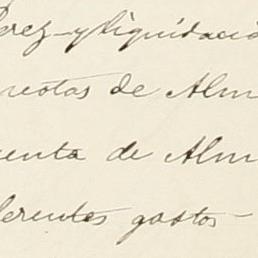 Perez - y liquidació
reotas de Alm
uenta de Alm
ferentes gastos -